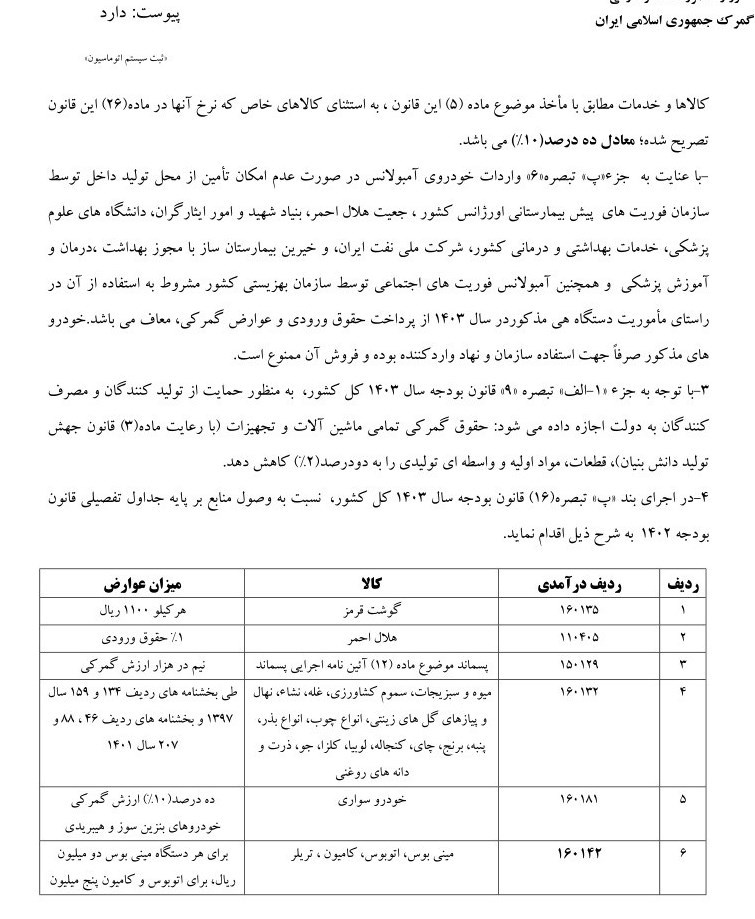 گمرک جمهوری اسلامی ایران
پیوست: دارد
«ثبت سیستم اتوماسیون»
کالاها و خدمات مطابق با مأخذ موضوع ماده (۵) این قانون ، به استثنای کالاهای خاص که نرخ آنها در ماده(۲۶) این قانون
تصریح شده؛ معادل ده درصد(۱۰٪) می باشد.
-با عنایت به جزء«پ» تبصره«۶» واردات خودروی آمبولانس در صورت عدم امکان تأمین از محل تولید داخل توسط
سازمان فوریت های پیش بیمارستانی اورژانس کشور ، جعیت هلال احمر، بنیاد شهید و امور ایثارگران، دانشگاه های علوم
پزشکی، خدمات بهداشتی و درمانی کشور، شرکت ملی نفت ایران، و خیرین بیمارستان ساز با مجوز بهداشت ،درمان و
آموزش پزشکی و همچنین آمبولانس فوریت های اجتماعی توسط سازمان بهزیستی کشور مشروط به استفاده از آن در
راستای مأموریت دستگاه هی مذکوردر سال ۱۴۰۳ از پرداخت حقوق ورودی و عوارض گمرکی، معاف می باشد.خودرو
های مذکور صرفاً جهت استفاده سازمان و نهاد واردکننده بوده و فروش آن ممنوع است.
۳-با توجه به جزء «۱-الف» تبصره «۹» قانون بودجه سال ۱۴۰۳ کل کشور، به منظور حمایت از تولید کنندگان و مصرف
کنندگان به دولت اجازه داده می شود: حقوق گمرکی تمامی ماشین آلات و تجهیزات (با رعایت ماده(۳) قانون جهش
تولید دانش بنیان)، قطعات، مواد اولیه و واسطه ای تولیدی را به دودرصد(۲٪) کاهش دهد.
۴-در اجرای بند «پ» تبصره(۱۶) قانون بودجه سال ۱۴۰۳ کل کشور، نسبت به وصول منابع بر پایه جداول تفصیلی قانون
بودجه ۱۴۰۲ به شرح ذیل اقدام نماید.
ردیف ردیف درآمدی کالا میزان عوارض
۱ ۱۶۰۱۳۵ گوشت قرمز هرکیلو ۱۱۰۰ ریال
۲ ۱۱۰۴۰۵ هلال احمر ۱٪ حقوق ورودی
۳ ۱۵۰۱۲۹ پسماند موضوع ماده (۱۲) آئین نامه اجرایی پسماند نیم در هزار ارزش گمرکی
۴ ۱۶۰۱۳۲ میوه و سبزیجات، سموم کشاورزی، غله، نشاء، نهال طی بخشنامه های ردیف ۱۳۴ و ۱۵۹ سال
و پیازهای گل های زینتی، انواع چوب، انواع بذر، ۱۳۹۷ و بخشنامه های ردیف ۴۶ ، ۸۸ و
پنبه، برنج، چای، کنجاله، لوبیا، کلزا، جو، ذرت و ۲۰۷ سال ۱۴۰۱
دانه های روغنی
۵ ۱۶۰۱۸۱ خودرو سواری ده درصد(۱۰٪) ارزش گمرکی
خودروهای بنزین سوز و هیبریدی
۶ ۱۶۰۱۴۲ مینی بوس، اتوبوس، کامیون ، تریلر برای هر دستگاه مینی بوس دو میلیون
ریال، برای اتوبوس و کامیون پنج میلیون